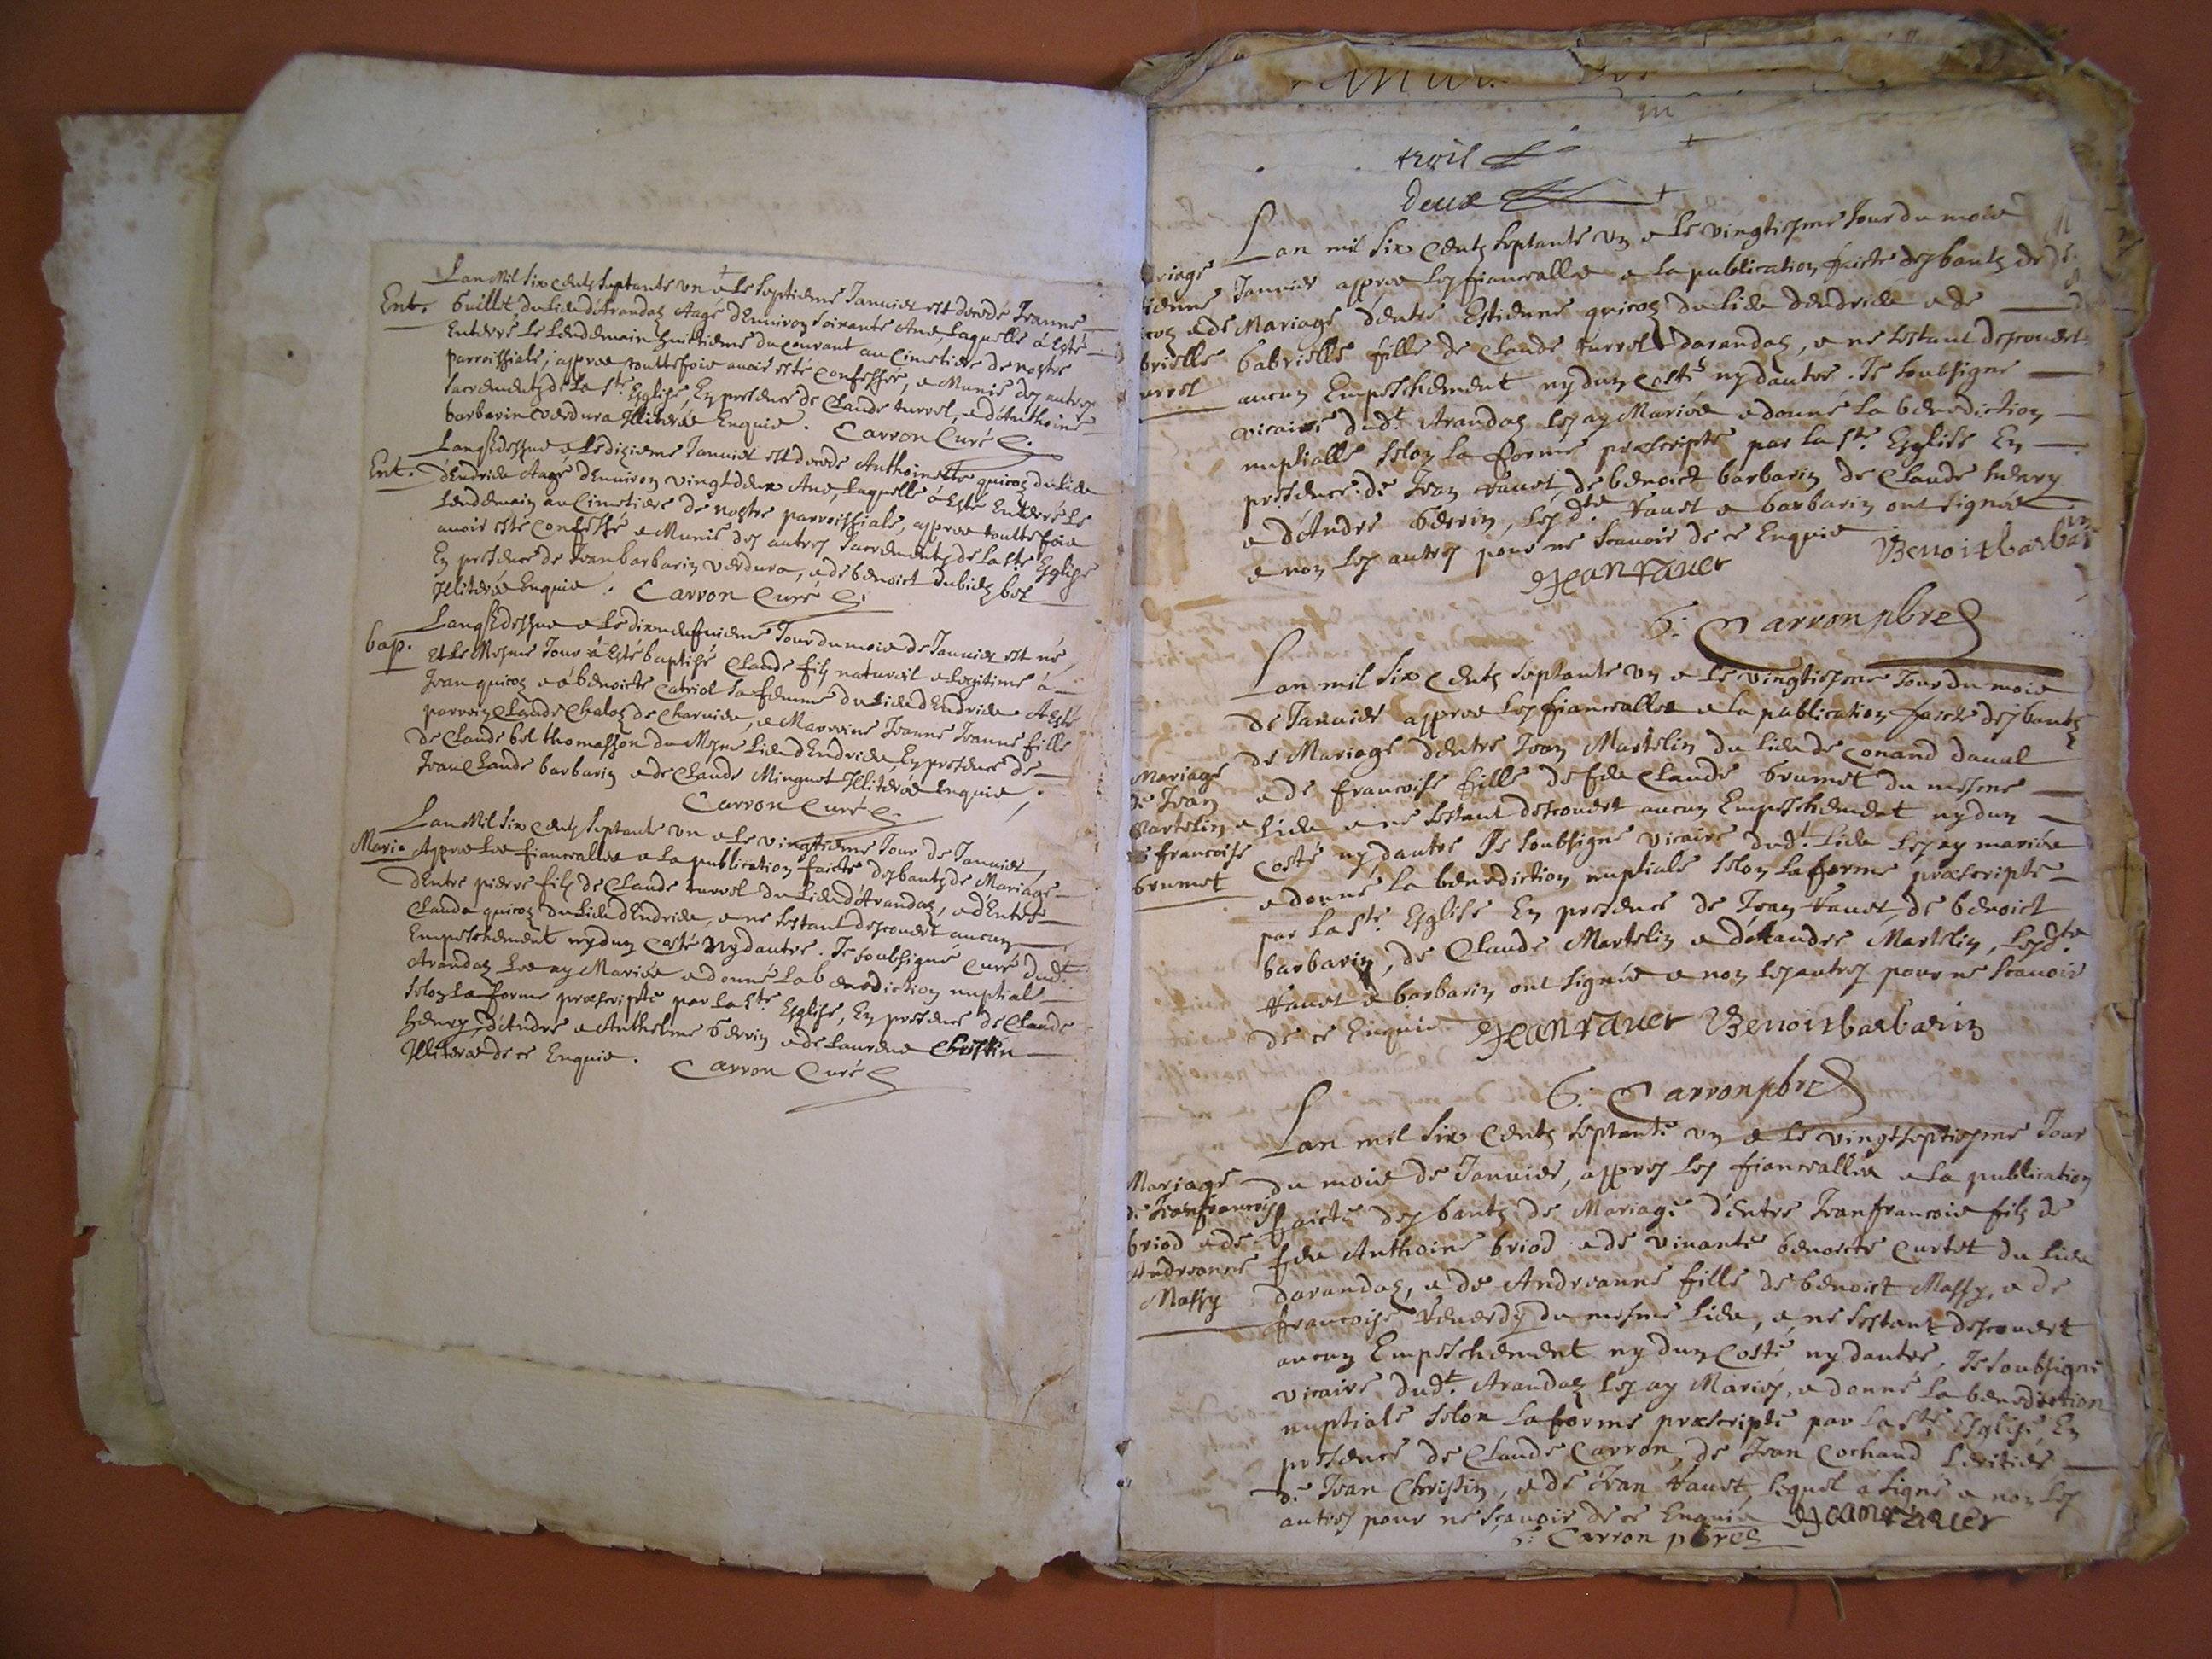 Lan Mil six centz septante un & le septieme Januier est decedé Jeanne
Ent. Guillet du lieu d'Arandaz Aagé denuiron soixante Ans, laquelle à esté
Enterré le lendemain huictieme du courant au Cimetiere de nostre
parroissiale, appres touttefois auoir esté confessée, & Munie des autres
sacrementz de la ste Esglise, En presence de Claude turrel, & d'Anthoine
barbarin verdura Illiterés Enquis. Carron Curé
Lanqsidessus & le dixieme Januier est decedé Anthoinette quicoz du lieu
Ent. dEndrieu Aagé denuiron vingtdeux Ans, laquelle à Esté Enterré le
lendemain au Cimetiere de nostre parroissiale, appres touttefois
auoir esté Confessé & Munie des autres sacrementz de la ste Esglise
En presence de Jean barbarin verdura, & de benoict dubiez bel
Illiterés Enquis. Carron Curé
Lanqsidessus & le dixneufuieme Jour du mois de Januier est né,
bap. Et le Mesme Jour à Esté baptisé Claude fils naturel & legitime à
Jean quicoz & à benoicte Catriol sa femme du lieu dEndrieu. A Esté
parrein Claude Chaloz de Charuieu, & Marreine Jeanne Jeanne fille
de Claude bel thomasson du Mesme lieu dEndrieu En presence de
Jean Claude barbarin & de Claude Minguet Illiterés Enquis.
Carron Curé
Lan Mil six centz septante un & le vingtieme Jour de Januier,
Maria Appres les fiancialles & la publication faicte des bantz de Mariage
dEntre pierre fils de Claude turrel du lieu d'Arandaz, & dEntre
Clauda quicoz du lieu dEndrieu, & ne sestant descouert aucun
Empeschement ny dun costé Ny dautre. Je soubsigné curé dudt
Arandaz les ay Mariés & donné la benediction nuptiale
selon la forme præscripte par la ste Esglise, En presence de Claude
henry, d'André & Anthelme Gerrin & de Laurens Christin
Illiterés de ce Enquis. Carron Curé
trois
deux
Lan mil six centz septante un & le vingtiesme Jour du mois
Januier appres les fiancialles & la publication faicte des bantz de
& de Mariage dentre Estienne quicoz du lieu dendrieu & de
Gabrielle fille de Claude turrel darandaz, & ne sestant descouert
aucun Empeschement ny dun costé ny dautre. Je soubsigné
vicaire dudt Arandaz les ay Mariés & donné la benediction
nuptialle selon la forme præscripte par la ste Esglise En
presence de Jean tauet, de benoict barbarin de Claude henry
& d'André Gerrin, lesdts tauet & barbarin ont signés
& non les autres pour ne scauoir de ce Enquis Benoist barbarin
Jean tauet
G. Carron pbre
Lan mil six centz septante un & le vingtiesme Jour du mois
de Januier appres les fiancialles & la publication faicte des bantz
Mariage de Mariage dentre Jean Martelin du lieu de Conand daual
de Jean & de francoise fille de feu Claude brumet du mesme
Martelin & lieu & ne sestant descouert aucun Empeschement ny dun
francoise costé ny dautre Je soubsigné vicaire dudt lieu les ay mariés
brumet & donné la benediction nuptiale selon la forme præscripte
par la ste Esglise En presence de Jean tauet, de benoict
barbarin, de Claude Martelin & d'André Martelin, lesdts
tauet & barbarin ont signés & non les autres pour ne scauoir
de ce Enquis Jean tauet Benoist barbarin
G. Carron pbre
Lan mil six centz septante un & le vingtseptiesme Jour
Mariage du mois de Januier, appres les fiancialles & la publication
de Jeanfrancois faicte des bantz de Mariage dEntre Jeanfrancois fils de
briod & de feu Anthoine briod & de viuante benoicte Curtet du lieu
Andreanne darandaz, & de Andreanne fille de benoict Massy, & de
Massy francoise teuerdy du mesme lieu, & ne sestant descouert
aucun Empeschement ny dun costé ny dautre, Je soubsigné
vicaire dudt. Arandaz les ay Mariés, & donné la benediction
nuptiale selon la forme præscripte par la ste Esglise, En
presence de Claude Carron, de Jean Cochand
de Jean Christin, & de Jean tauet, lequel à signé & non les
autres pour ne sçauoir de ce Enquis Jean tauet
G. Carron pbre